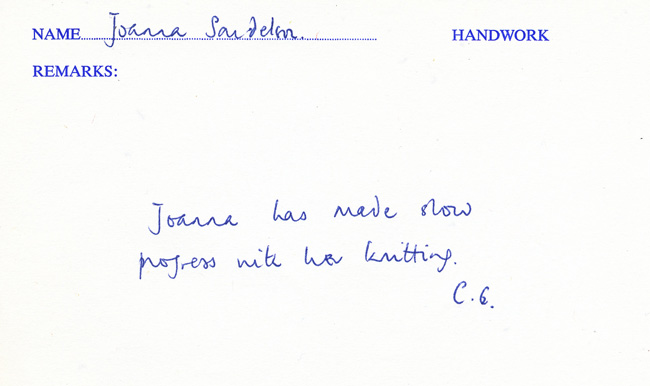 NAME Joanna Sandelson. HANDWORK
REMARKS:
Joanna has made slow
progress with her knitting.
C.G.